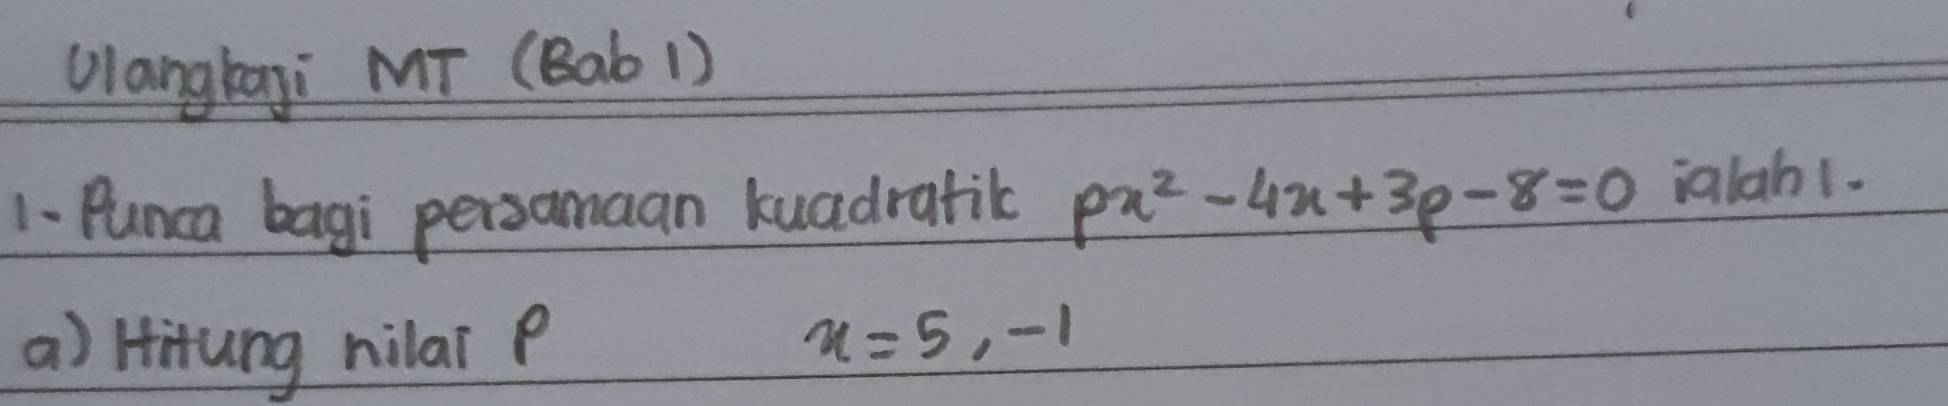 Ulangkaji MT (Bab 1)
1. Punca bagi persamaan kuadratik px² - 4x + 3p - 8 = 0 ialah 1.
a) Hitung nilai p x = 5, -1